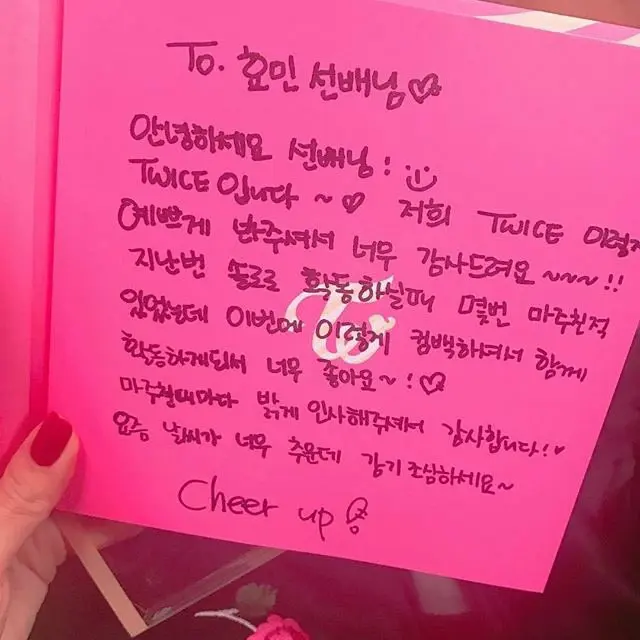 To. 효민 선배님♡
안녕하세요 선배님! :)
TWICE입니다 ~ ♡ 저희 TWICE 이렇게
예쁘게 봐주셔서 너무 감사드려요 ~~~!!
지난번 솔로로 활동하실때 몇번 마주친적
있었는데 이번에 이렇게 컴백하셔서 함께
활동하게되서 너무 좋아요~!♡
마주칠때마다 밝게 인사해주셔서 감사합니다!♥
요즘 날씨가 너무 추운데 감기조심하세요~
Cheer up